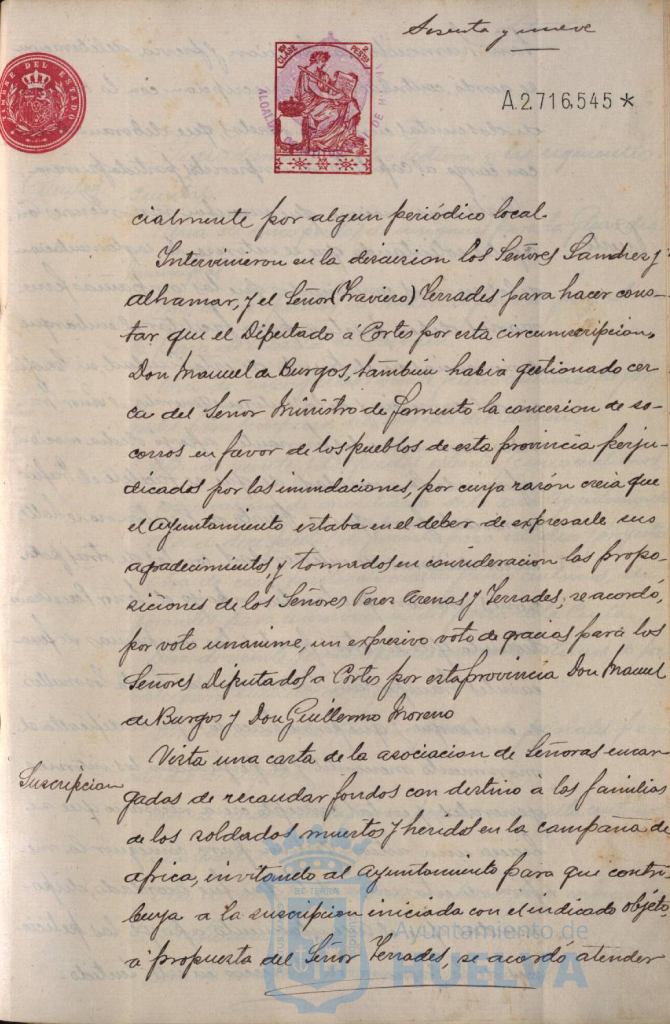 Sesenta y nueve
TIMBRE DEL ESTADO
CLASE PESETA
A.2.716.545 *
cialmente por algun periódico local.
Intervinieron en la discusion los Señores Sanchez y
Alhamar, y el Señor (Traviero) Terrades para hacer cons-
tar que el Diputado á Cortes por esta circumscripcion,
Don Manuel de Burgos, tambien habia gestionado cer-
ca del Señor Ministro de fomento la concesion de so-
corros en favor de los pueblos de esta provincia perju-
dicados por las inundaciones, por cuya razón creia que
el Ayuntamiento estaba en el deber de expresarle sus
agradecimientos, y tomados en consideracion las propo-
siciones de los Señores Perez Arenas y Terrades, se acordó,
por voto unanime, un expresivo voto de gracias para los
Señores Diputados a Cortes por esta provincia Don Manuel
de Burgos y Don Guillermo Moreno
Suscripcion
Vista una carta de la asociacion de Señoras encar-
gadas de recaudar fondos con destino á las familias
de los soldados muertos y heridos en la campaña de
africa, invitando al Ayuntamiento para que contri-
buya a la suscripcion iniciada con el indicado objeto
á propuesta del Señor Terrades, se acordó atender
Ayuntamiento de
HUELVA